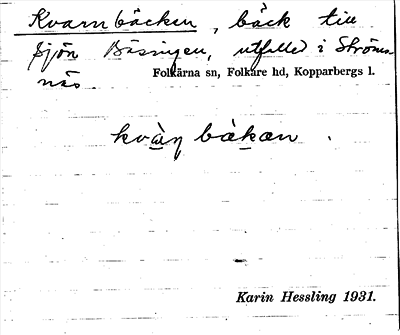 Kvarnbäcken, bäck till
sjön Bäsingen, utfaller i Ströms-
näs.
Folkärna sn, Folkare hd, Kopparbergs l.
kvàṇ bàkan.
Karin Hessling 1931.